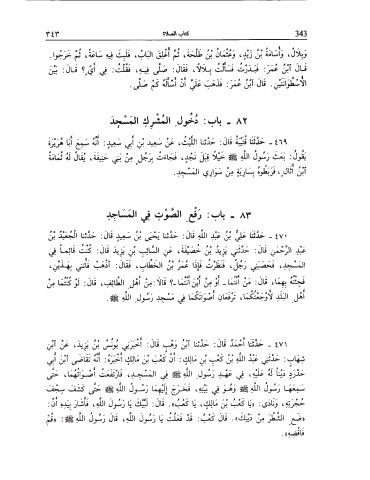 343 كتاب الصلاة ٣٤٣
وَبِلَالٌ، وَأُسَامَةُ بْنُ زَيْدٍ، وَعُثْمَانُ بْنُ طَلْحَةَ، ثُمَّ أُغْلِقَ الْبَابُ، فَلَبِثَ فِيهِ سَاعَةً، ثُمَّ خَرَجُوا.
قَالَ ابْنُ عُمَرَ: فَبَدَرْتُ فَسَأَلْتُ بِلَالًا، فَقَالَ: صَلَّى فِيهِ، فَقُلْتُ: فِي أَيٍّ؟ قَالَ: بَيْنَ
الْأُسْطُوَانَتَيْنِ. قَالَ ابْنُ عُمَرَ: فَذَهَبَ عَلَيَّ أَنْ أَسْأَلَهُ كَمْ صَلَّى.
٨٢ - باب: دُخُولِ الْمُشْرِكِ الْمَسْجِدَ
٤٦٩ - حَدَّثَنَا قُتَيْبَةُ قَالَ: حَدَّثَنَا اللَّيْثُ، عَنْ سَعِيدِ بْنِ أَبِي سَعِيدٍ: أَنَّهُ سَمِعَ أَبَا هُرَيْرَةَ
يَقُولُ: بَعَثَ رَسُولُ اللَّهِ ﷺ خَيْلًا قِبَلَ نَجْدٍ، فَجَاءَتْ بِرَجُلٍ مِنْ بَنِي حَنِيفَةَ، يُقَالُ لَهُ ثُمَامَةُ
ابْنُ أُثَالٍ، فَرَبَطُوهُ بِسَارِيَةٍ مِنْ سَوَارِي الْمَسْجِدِ.
٨٣ - باب: رَفْعِ الصَّوْتِ فِي الْمَسَاجِدِ
٤٧٠ - حَدَّثَنَا عَلِيُّ بْنُ عَبْدِ اللَّهِ قَالَ: حَدَّثَنَا يَحْيَى بْنُ سَعِيدٍ قَالَ: حَدَّثَنَا الْجُعَيْدُ بْنُ
عَبْدِ الرَّحْمَنِ قَالَ: حَدَّثَنِي يَزِيدُ بْنُ خُصَيْفَةَ، عَنِ السَّائِبِ بْنِ يَزِيدَ قَالَ: كُنْتُ قَائِماً فِي
الْمَسْجِدِ، فَحَصَبَنِي رَجُلٌ، فَنَظَرْتُ فَإِذَا عُمَرُ بْنُ الْخَطَّابِ، فَقَالَ: اذْهَبْ فَأْتِنِي بِهَذَيْنِ،
فَجِئْتُهُ بِهِمَا، قَالَ: مَنْ أَنْتُمَا - أَوْ مِنْ أَيْنَ أَنْتُمَا -؟ قَالَا: مِنْ أَهْلِ الطَّائِفِ، قَالَ: لَوْ كُنْتُمَا مِنْ
أَهْلِ الْبَلَدِ لَأَوْجَعْتُكُمَا، تَرْفَعَانِ أَصْوَاتَكُمَا فِي مَسْجِدِ رَسُولِ اللَّهِ ﷺ.
٤٧١ - حَدَّثَنَا أَحْمَدُ قَالَ: حَدَّثَنَا ابْنُ وَهْبٍ قَالَ: أَخْبَرَنِي يُونُسُ بْنُ يَزِيدَ، عَنِ ابْنِ
شِهَابٍ: حَدَّثَنِي عَبْدُ اللَّهِ بْنُ كَعْبِ بْنِ مَالِكٍ: أَنَّ كَعْبَ بْنَ مَالِكٍ أَخْبَرَهُ: أَنَّهُ تَقَاضَى ابْنَ أَبِي
حَدْرَدٍ دَيْناً لَهُ عَلَيْهِ، فِي عَهْدِ رَسُولِ اللَّهِ ﷺ فِي الْمَسْجِدِ، فَارْتَفَعَتْ أَصْوَاتُهُمَا، حَتَّى
سَمِعَهَا رَسُولُ اللَّهِ ﷺ وَهُوَ فِي بَيْتِهِ، فَخَرَجَ إِلَيْهِمَا رَسُولُ اللَّهِ ﷺ حَتَّى كَشَفَ سِجْفَ
حُجْرَتِهِ، وَنَادَى: «يَا كَعْبُ بْنَ مَالِكٍ، يَا كَعْبُ». قَالَ: لَبَّيْكَ يَا رَسُولَ اللَّهِ، فَأَشَارَ بِيَدِهِ أَنْ:
«ضَعِ الشَّطْرَ مِنْ دَيْنِكَ». قَالَ كَعْبٌ: قَدْ فَعَلْتُ يَا رَسُولَ اللَّهِ، قَالَ رَسُولُ اللَّهِ ﷺ: «قُمْ
فَاقْضِهِ».